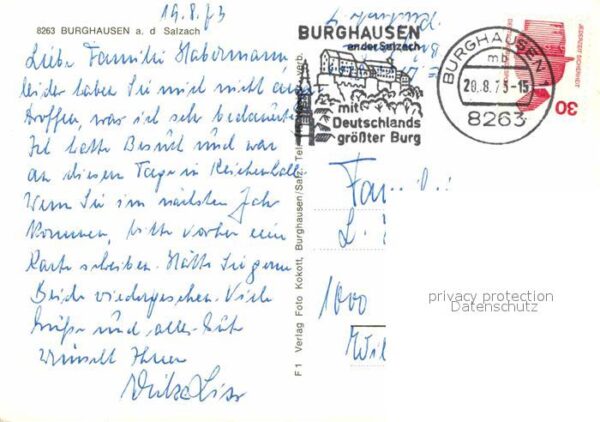 19.8.73
8263 BURGHAUSEN a. d Salzach
Liebe Familie Habermann,
leider haben Sie mich nicht ange
troffen, war ich sehr bedauerte
Ich hatte Besuch und war
an diesen Tage in Reichenhall.
Wenn Sie im nächsten Jahr
kommen, bitte vorher eine
Karte schreiben. Hätte Sie gern
Beide wiedergesehen. Viele
Grüße und alles Gute
wünscht Ihnen
F 1 Verlag Foto Kokott, Burghausen/Salz. Tele verb.
BURGHAUSEN
an der Salzach
mit
Deutschlands
größter Burg
BURGHAUSEN
mb
20.8.73-15
8263
30
Fa
L.
1000
Wil
privacy protection
Datenschutz